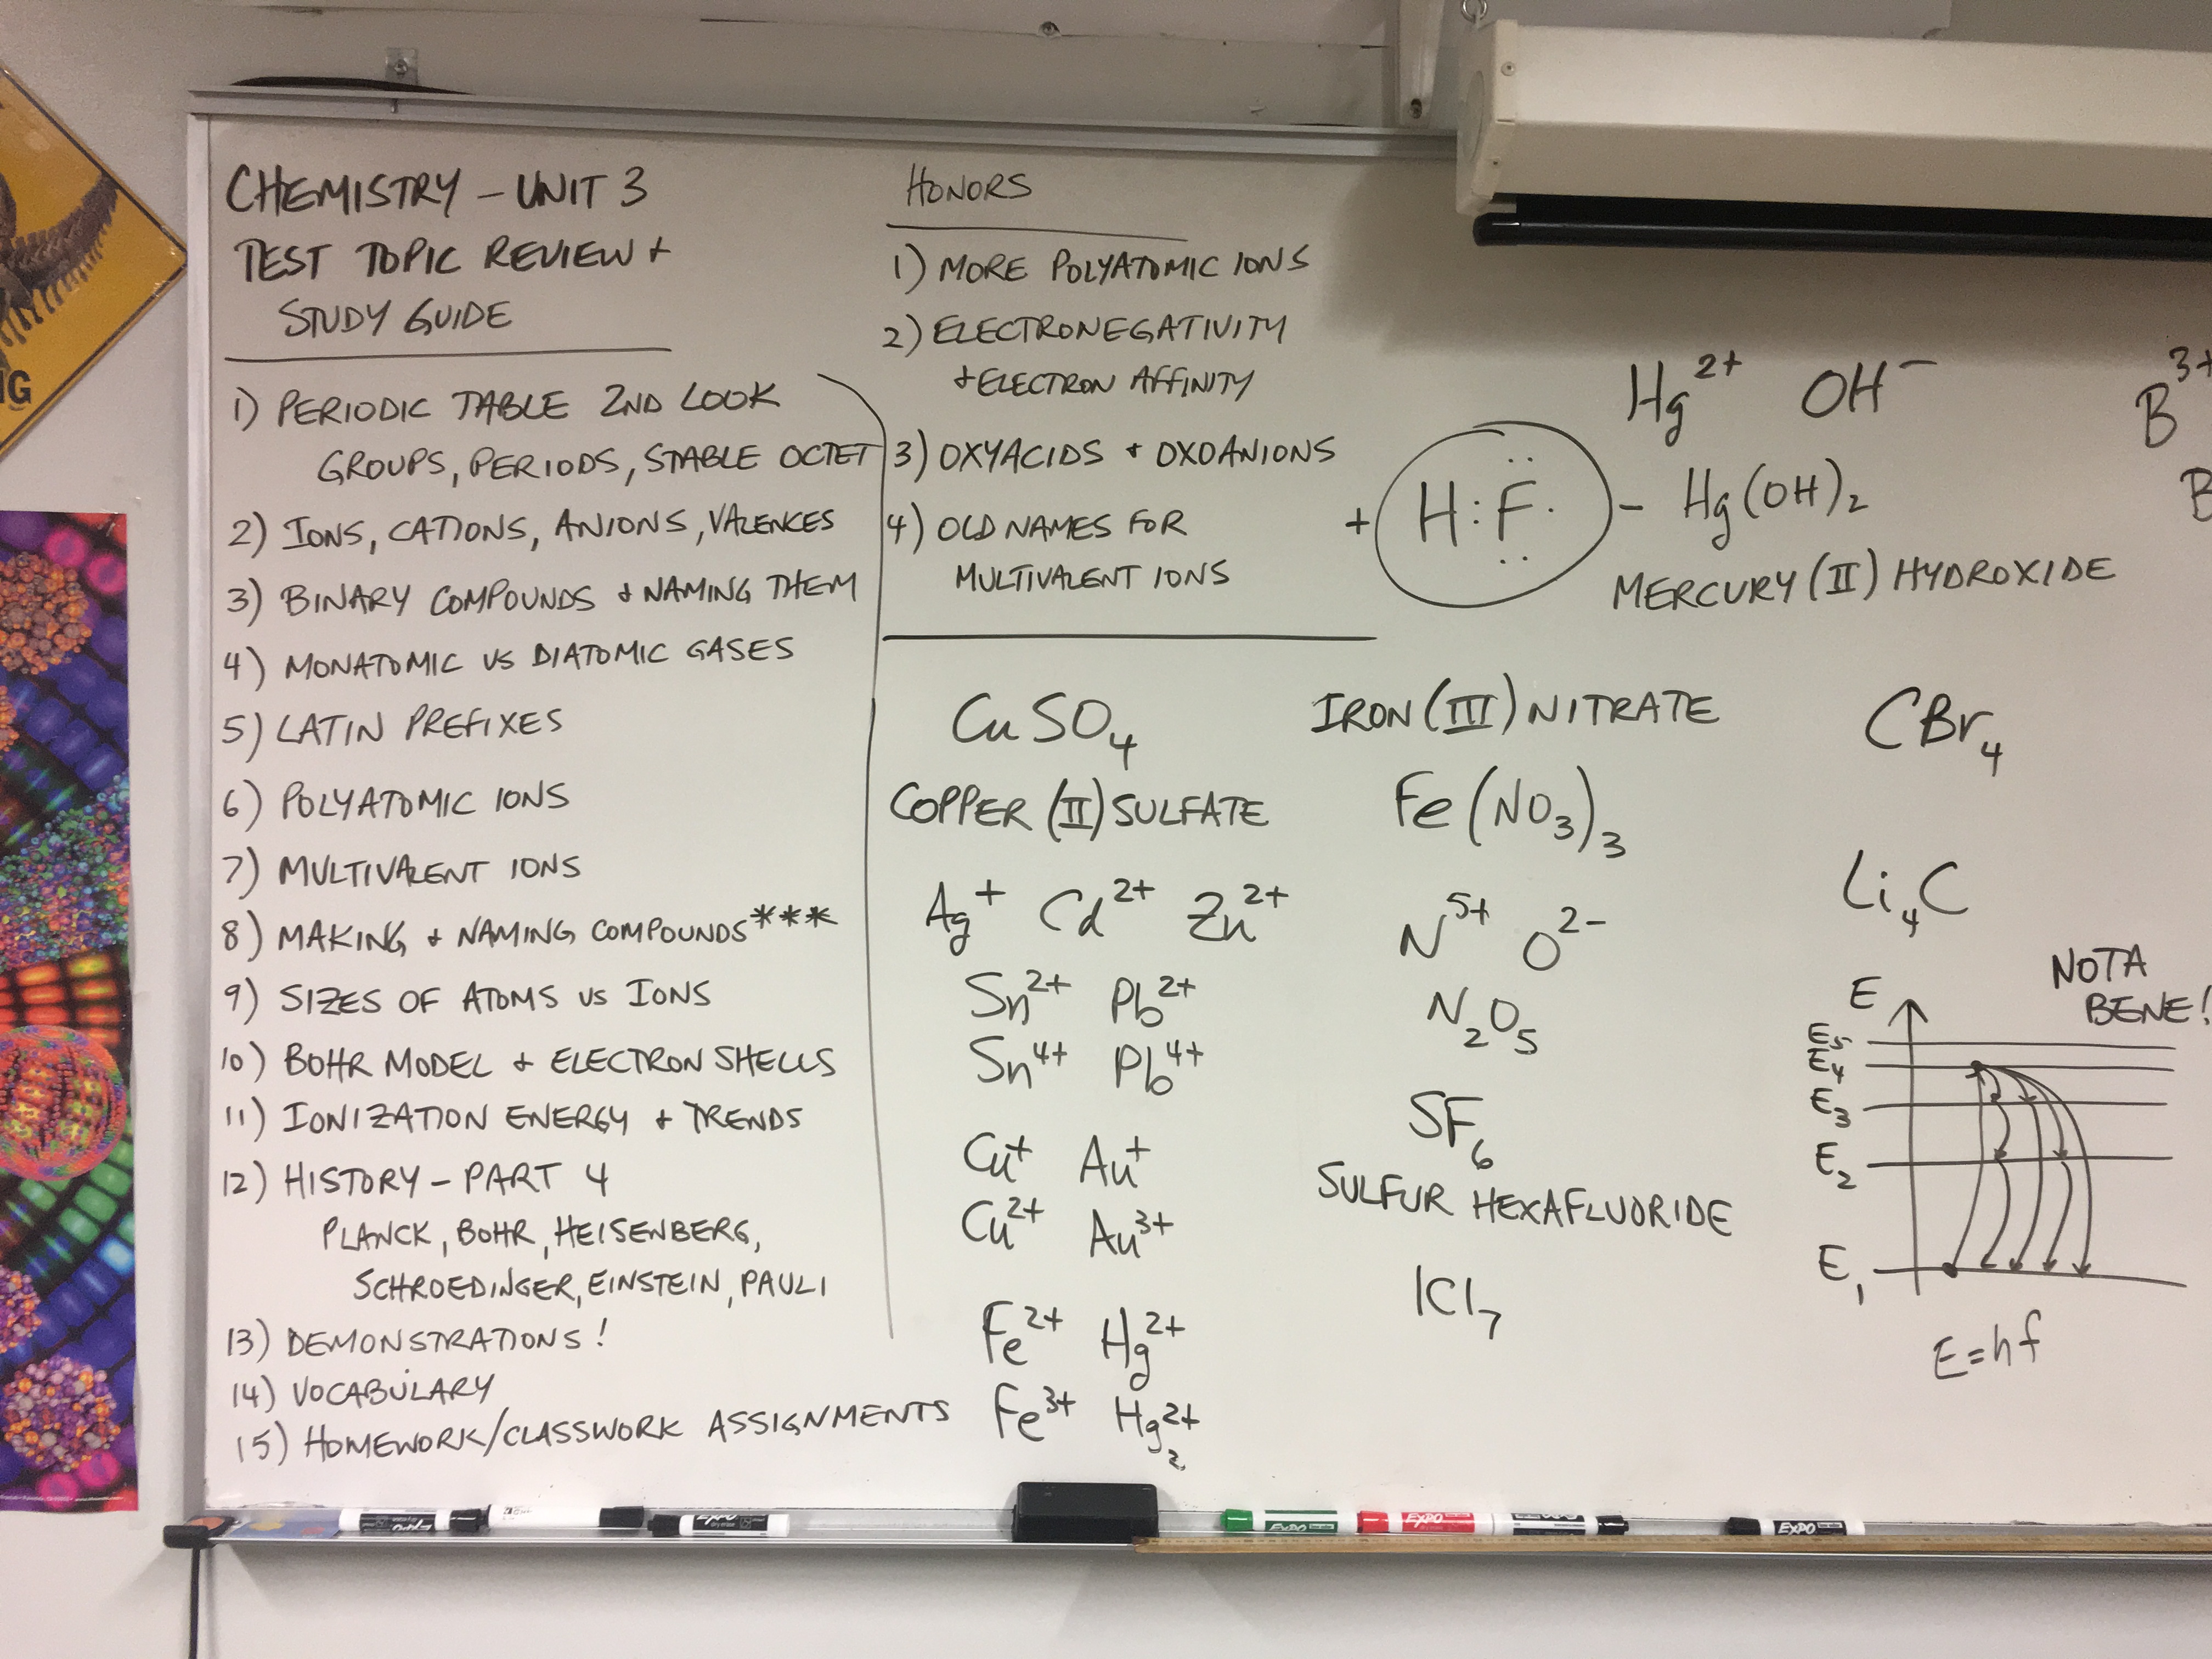 CHEMISTRY - UNIT 3
TEST TOPIC REVIEW +
STUDY GUIDE
1) PERIODIC TABLE 2ND LOOK
GROUPS, PERIODS, STABLE OCTET
2) IONS, CATIONS, ANIONS, VALENCES
3) BINARY COMPOUNDS + NAMING THEM
4) MONATOMIC VS DIATOMIC GASES
5) LATIN PREFIXES
6) POLYATOMIC IONS
7) MULTIVALENT IONS
8) MAKING + NAMING COMPOUNDS***
9) SIZES OF ATOMS VS IONS
10) BOHR MODEL + ELECTRON SHELLS
11) IONIZATION ENERGY + TRENDS
12) HISTORY - PART 4
PLANCK, BOHR, HEISENBERG,
SCHROEDINGER, EINSTEIN, PAULI
13) DEMONSTRATIONS!
14) VOCABULARY
15) HOMEWORK/CLASSWORK ASSIGNMENTS
HONORS
1) MORE POLYATOMIC IONS
2) ELECTRONEGATIVITY
+ ELECTRON AFFINITY
3) OXYACIDS + OXOANIONS
4) OLD NAMES FOR
MULTIVALENT IONS
CuSO₄
COPPER (II) SULFATE
Ag⁺ Cd²⁺ Zn²⁺
Sn²⁺ Pb²⁺
Sn⁴⁺ Pb⁴⁺
Cu⁺ Au⁺
Cu²⁺ Au³⁺
Fe²⁺ Hg²⁺
Fe³⁺ Hg₂²⁺
+ H:F -
IRON (III) NITRATE
Fe(NO₃)₃
N⁵⁺ O²⁻
N₂O₅
SF₆
SULFUR HEXAFLUORIDE
ICl₇
Hg²⁺ OH⁻
Hg(OH)₂
MERCURY (II) HYDROXIDE
B³⁺
B
CBr₄
Li₄C
NOTA
BENE!
E
E₅
E₄
E₃
E₂
E₁
E=hf
NG
EXPO
EXPO
EXPO
EXPO
EXPO